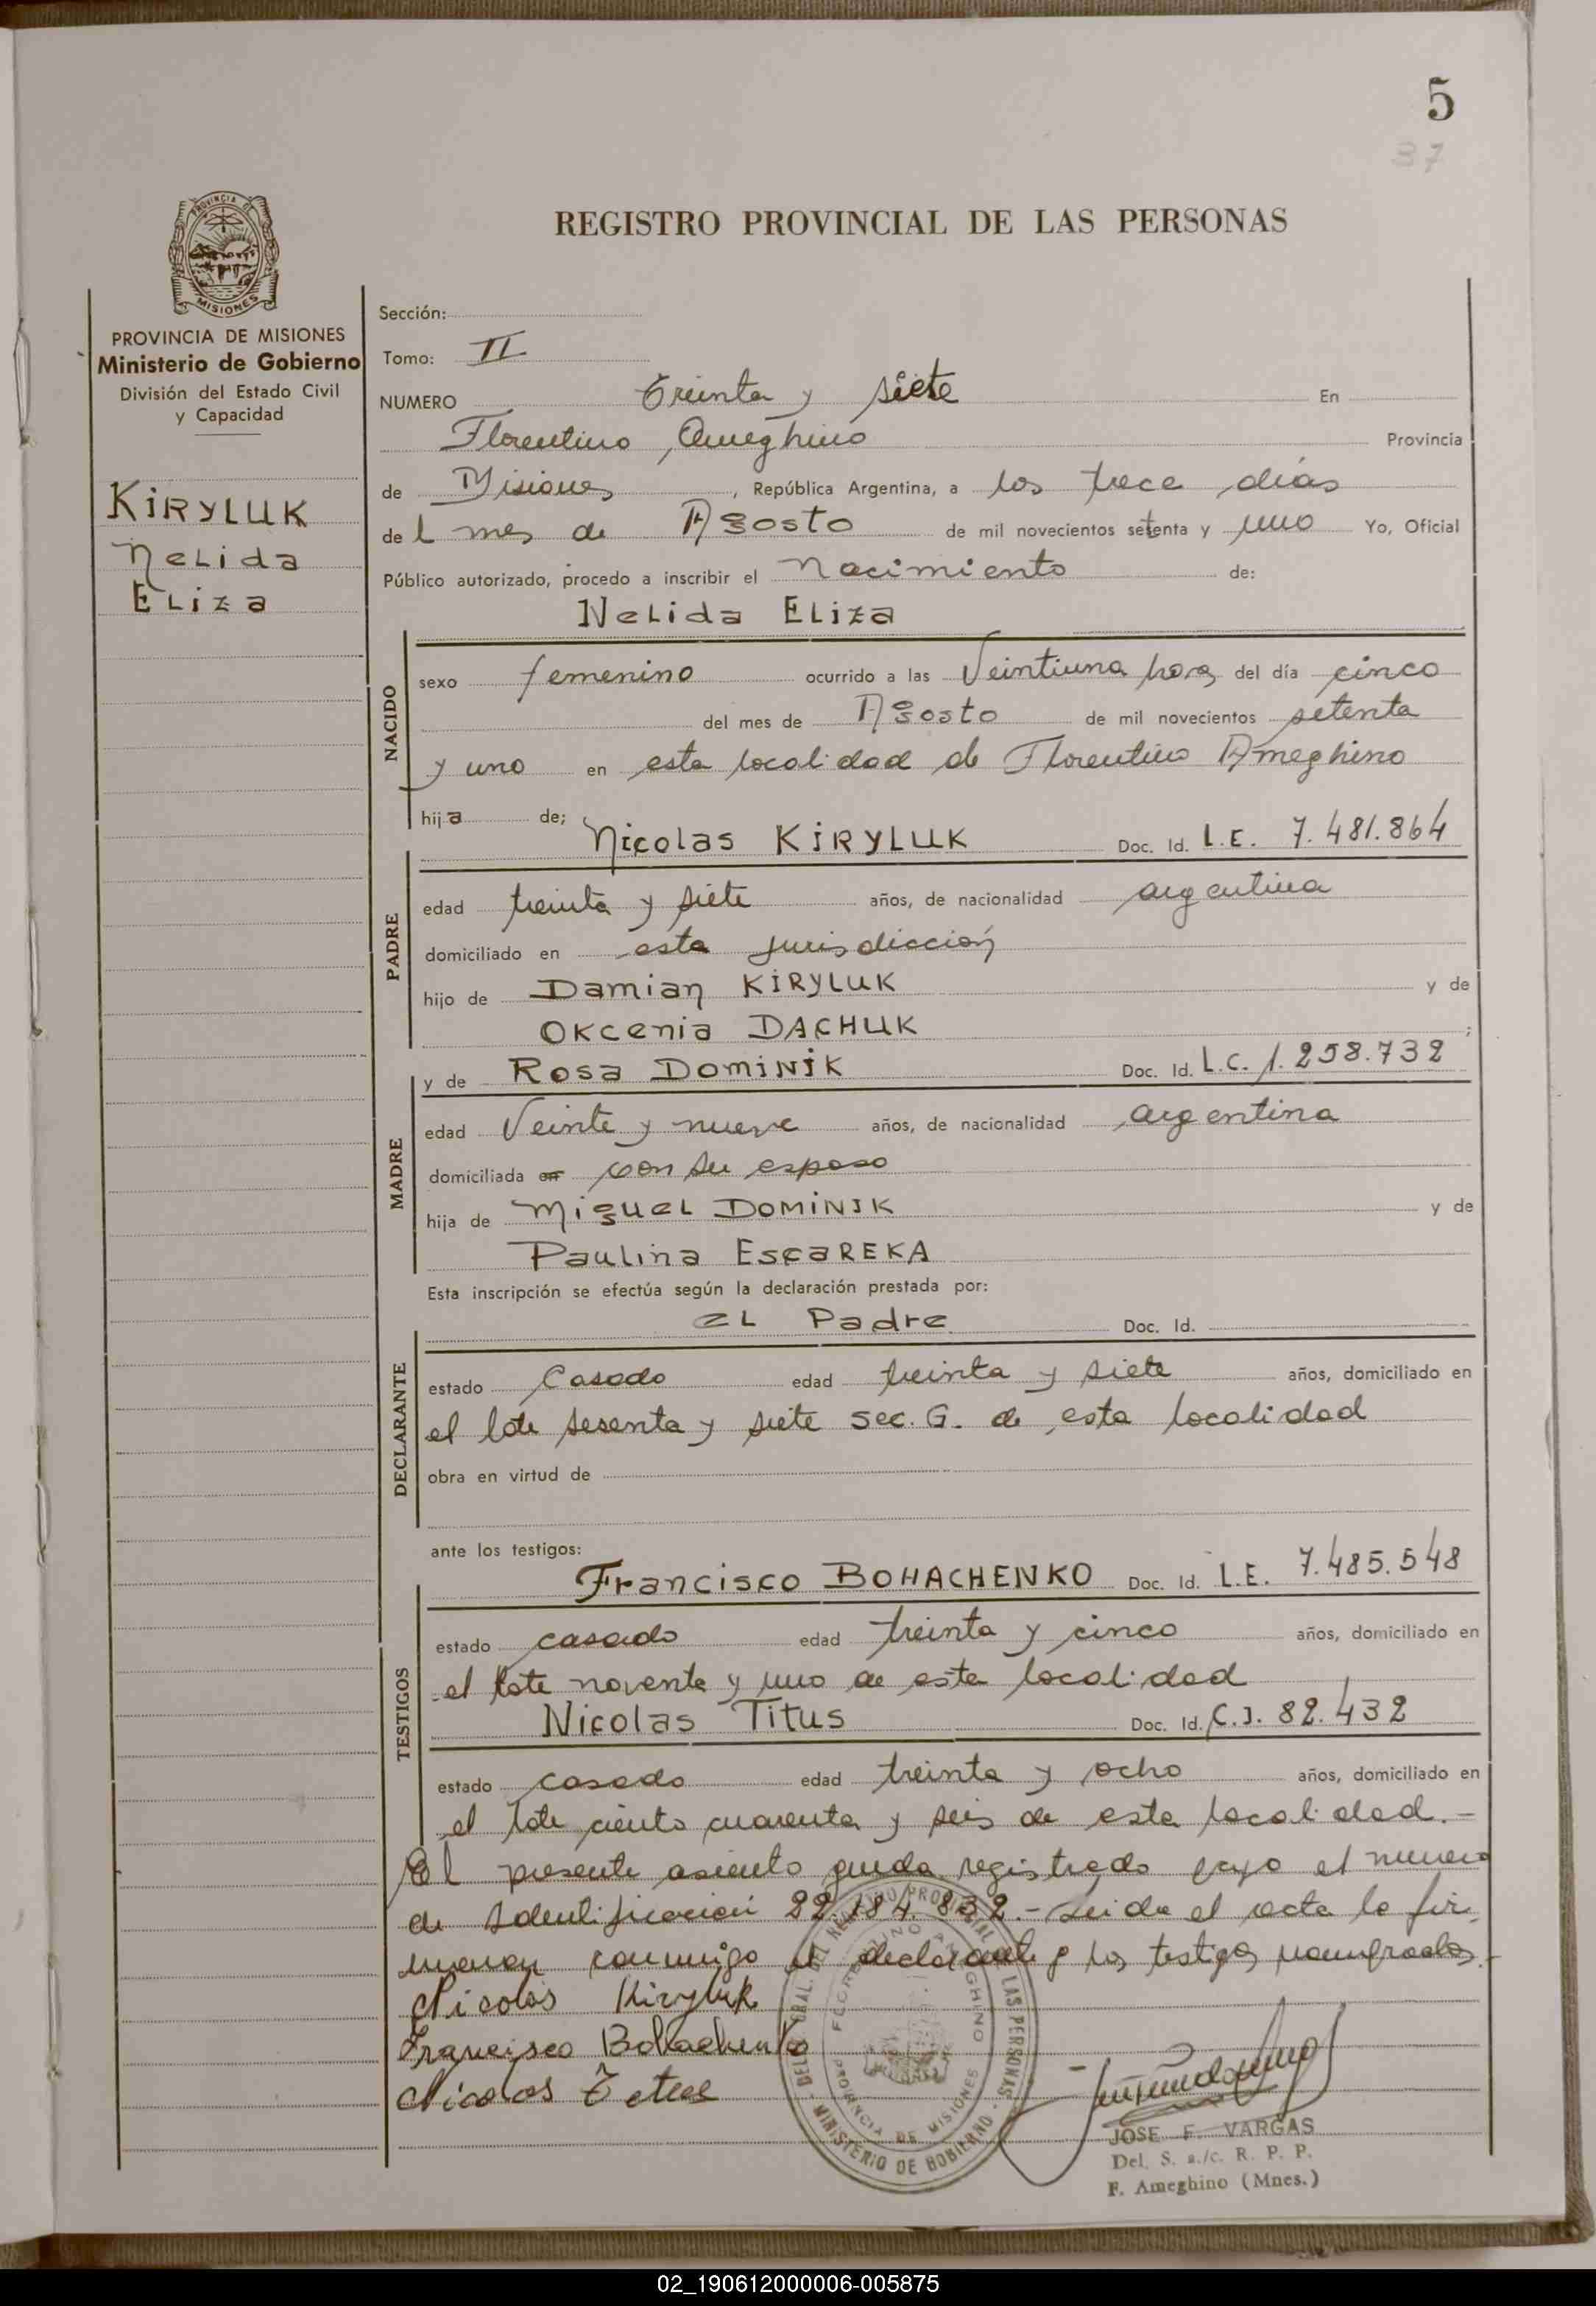 5
37
REGISTRO PROVINCIAL DE LAS PERSONAS
PROVINCIA DE MISIONES
Ministerio de Gobierno
División del Estado Civil
y Capacidad
KIRYLUK
Nelida
Eliza
Sección:
Tomo: II
NUMERO Treinta y siete En
Florentino Ameghino Provincia
de Misiones, República Argentina, a los trece días
del mes de Agosto de mil novecientos setenta y uno Yo, Oficial
Público autorizado, procedo a inscribir el nacimiento de:
Nelida Eliza
NACIDO
sexo femenino ocurrido a las Veintiuna horas del día cinco
del mes de Agosto de mil novecientos setenta
y uno en esta localidad de Florentino Ameghino
hija de; Nicolas KIRYLUK Doc. Id. L.E. 7.481.864
PADRE
edad treinta y siete años, de nacionalidad argentina
domiciliado en esta jurisdicción
hijo de Damian KIRYLUK y de
Okcenia DACHUK;
y de Rosa DOMINIK Doc. Id. L.C. 1.258.732
MADRE
edad Veinte y nueve años, de nacionalidad argentina
domiciliada en con su esposo
hija de Miguel DOMINIK y de
Paulina EscaREKA
Esta inscripción se efectúa según la declaración prestada por:
el Padre Doc. Id.
DECLARANTE
estado Casado edad treinta y siete años, domiciliado en
el lote sesenta y siete sec. G. de esta localidad
obra en virtud de
ante los testigos:
Francisco BOHACHENKO Doc. Id. L.E. 7.485.548
TESTIGOS
estado casado edad treinta y cinco años, domiciliado en
el lote noventa y uno de esta localidad
Nicolas Titus Doc. Id. C.I. 82.432
estado casado edad treinta y ocho años, domiciliado en
el lote ciento cuarenta y seis de esta localidad.-
El presente asiento queda registrado bajo el numero
de Identificación 22.184.832.- Leida el acta la fir
maron conmigo el declarante y los testigos nombrados.-
Nicolas Kiryluk
Francisco Bohachenko
Nicolas Titus
JOSE F. VARGAS
Del. S. a./c. R. P. P.
F. Ameghino (Mnes.)
02_190612000006-005875